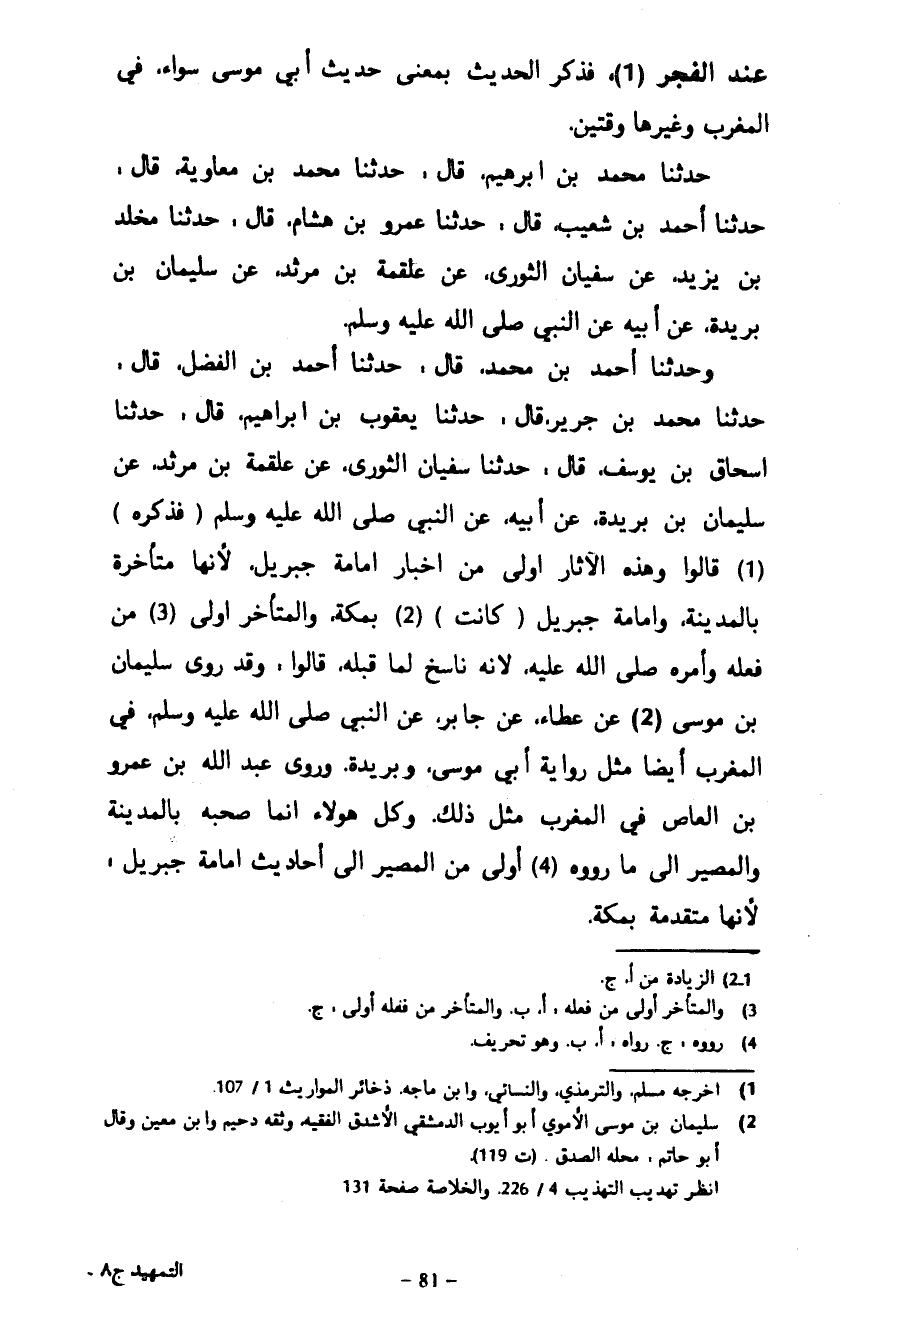 عند الفجر (1)، فذكر الحديث بمعنى حديث أبي موسى سواء، في
المغرب وغيرها وقتين.
حدثنا محمد بن ابرهيم، قال : حدثنا محمد بن معاوية، قال :
حدثنا أحمد بن شعيب، قال : حدثنا عمرو بن هشام، قال : حدثنا مخلد
بن يزيد، عن سفيان الثورى، عن علقمة بن مرثد، عن سليمان بن
بريدة، عن أبيه عن النبي صلى الله عليه وسلم.
وحدثنا أحمد بن محمد، قال : حدثنا أحمد بن الفضل، قال :
حدثنا محمد بن جرير،قال : حدثنا يعقوب بن ابراهيم، قال : حدثنا
اسحاق بن يوسف، قال : حدثنا سفيان الثورى، عن علقمة بن مرثد، عن
سليمان بن بريدة، عن أبيه، عن النبي صلى الله عليه وسلم ( فذكره )
(1) قالوا وهذه الآثار اولى من اخبار امامة جبريل، لأنها متأخرة
بالمدينة، وامامة جبريل ( كانت ) (2) بمكة، والمتأخر اولى (3) من
فعله وأمره صلى الله عليه، لانه ناسخ لما قبله، قالوا : وقد روى سليمان
بن موسى (2) عن عطاء، عن جابر، عن النبي صلى الله عليه وسلم، في
المغرب أيضا مثل رواية أبي موسى، وبريدة. وروى عبد الله بن عمرو
بن العاص في المغرب مثل ذلك. وكل هولاء انما صحبه بالمدينة
والمصير الى ما رووه (4) أولى من المصير الى أحاديث امامة جبريل :
لأنها متقدمة بمكة.
1ـ2) الزيادة من أ، ج.
3) والمتأخر أولى من فعله : أ، ب. والمتأخر من ففله أولى : ج.
4) رووه : ج. رواه : أ، ب. وهو تحريف.
1) اخرجه مسلم، والترمذي، والنسائي، وابن ماجه. ذخائر المواريث 1 / 107.
2) سليمان بن موسى الأموي أبو أيوب الدمشقي الأشدق الفقيه، وثقه دحيم وابن معين وقال
أبو حاتم : محله الصدق . (ت 119).
انظر تهديب التهذيب 4 / 226. والخلاصة صفحة 131
التمهيد ج٨ -
- 81 -